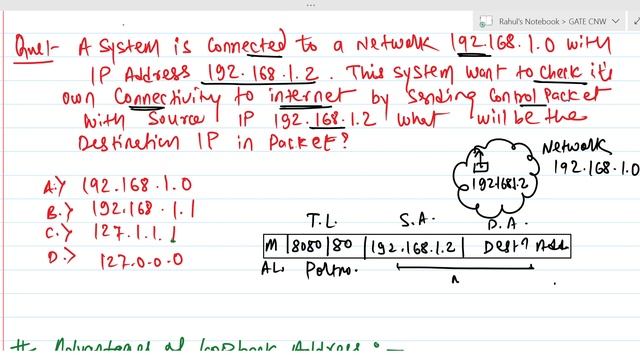 ...
Rahul's Notebook > GATE CNW
Que1:- A system is connected to a Network 192.168.1.0 with
IP Address 192.168.1.2. This system want to check it's
own Connectivity to internet by sending Control Packet
with Source IP 192.168.1.2 what will be the
Destination IP in Packet?
A.) 192.168.1.0
B.) 192.168.1.1
C.) 127.1.1.1
D.) 127.0.0.0
Network
192.168.1.0
192.168.1.2
T.L. S.A. D.A.
M 8080 80 192.168.1.2 Destn Add
AL Portno. n
# Advantages of loopback Address:-